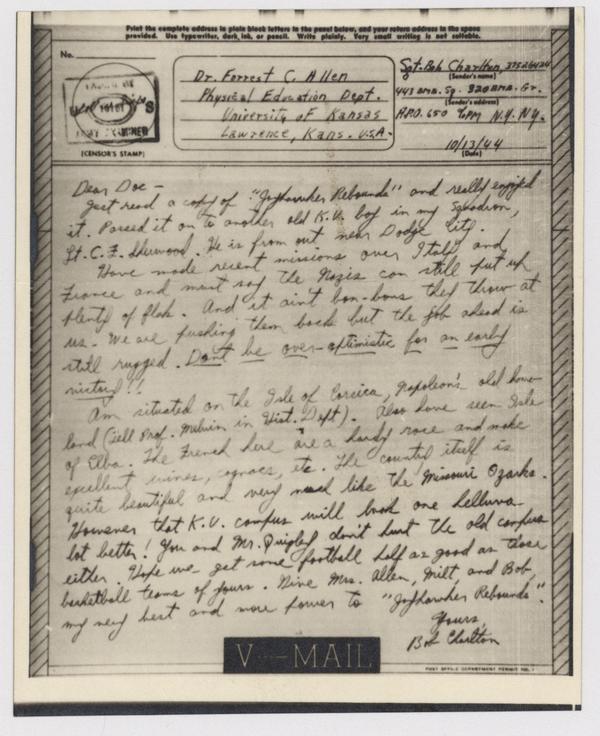 Print the complete address in plain block letters in the panel below, and your return address in the space
provided. Use typewriter, dark ink, or pencil. Write plainly. Very small writing is not suitable.
No.
Dr. Forrest C. Allen
Physical Education Dept.
University of Kansas
Lawrence, Kans. U.S.A.
Sgt. Bob Charlton,
(Sender's name)
443 BMB. Sq. 320 BMB. Gr.
(Sender's address)
A.P.O. 650 % PM N.Y. N.Y.
10/13/44
(Date)
EXAMINER
(CENSOR'S STAMP)
Dear Doc –
Just read a copy of "Jayhawker Rebounds" and really enjoyed
it. Passed it on to another old K.U. boy in my Squadron,
Lt. C. E. Sherwood. He is from out near Dodge City.
Have made recent missions over Italy and
France and must say the Nazis can still put up
plenty of flak. And it ain't bon-bons they throw at
us. We are pushing them back but the job ahead is
still rugged. Don't be over-optimistic for an early
victory!!
Am situated on the Isle of Corsica, Napoleon's old home-
land (tell Prof. Melvin in Hist. Dept). Also have seen Isle
of Elba. The French here are a hardy race and make
excellent wines, cognacs, etc. The country itself is
quite beautiful and very much like the Missouri Ozarks.
However that K.U. campus will look one helluva
lot better! You and Mr. Quigley don't hurt the old campus
either. Hope we get some football half as good as those
basketball teams of yours. Give Mrs. Allen, Milt, and Bob,
my very best and more power to "Jayhawker Rebounds".
Yours,
Bob Charlton
V-MAIL
POST OFFICE DEPARTMENT PERMIT NO. 1